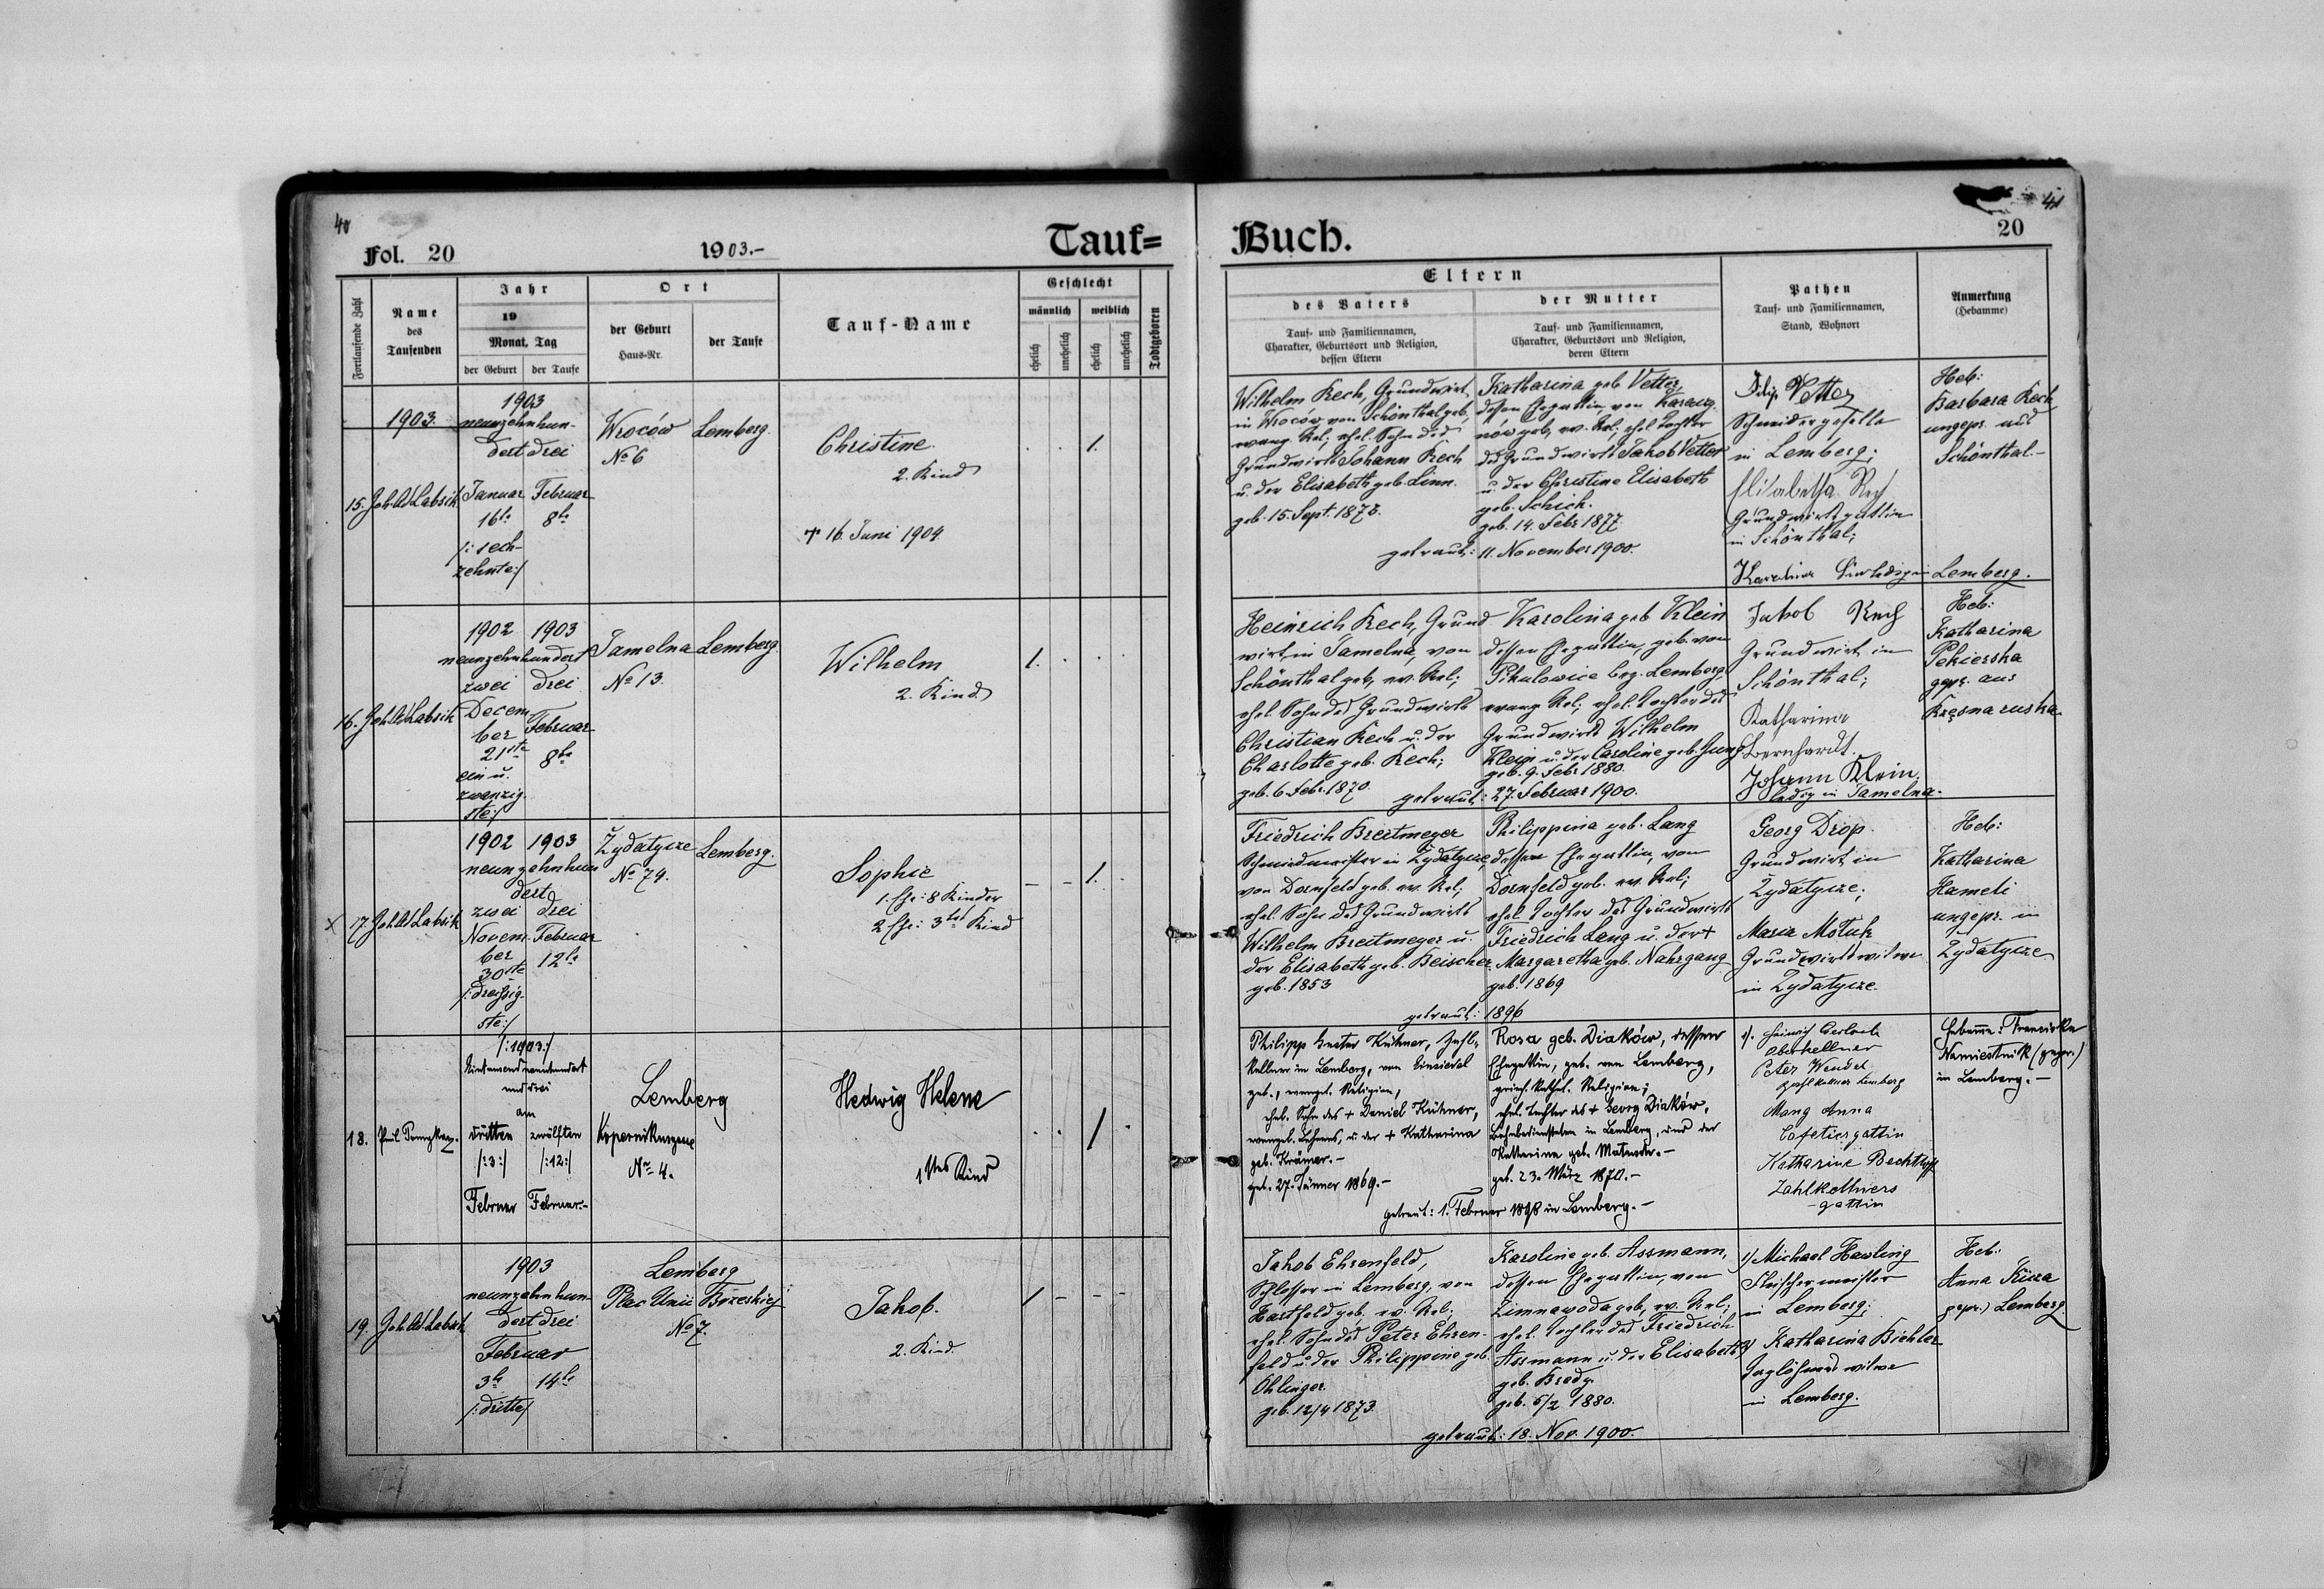 40
Fol. 20
1903.-
Tauf=
Fortlaufende Zahl
Name
des
Taufenden
Jahr
19
Monat, Tag
der Geburt
der Taufe
Ort
der Geburt
Haus-Nr.
der Taufe
Tauf-Name
Geschlecht
männlich
weiblich
ehelich
unehelich
ehelich
unehelich
Todtgeboren
1903.
15. Joh.
1903
neunzehnhun-
dert drei
Januar
16te
/: sech-
zehnte:/
Februar
8te
Wroców
No 6
Lemberg.
Christine.
2. Kind
† 16. Juni 1904.
1.
16. Joh.
1902 1903
neunzehnhundert
zwei drei
Decem
ber
21ste
ein u.
zwanzig-
ste:/
Februar
8te
Jamelna
No 13.
Lemberg.
Wilhelm
2. Kind
1.
x 17. Joh.
1902 1903
neunzehnhun
dert
zwei drei
Novem
ber
30ste
/: dreißig-
ste:/
Februar
12te
Żydatycze
No 74.
Lemberg.
Sophie
1. Ehe: 8 Kinder
2. Ehe: 3tes Kind
1.
18.
/:1903:/
und drei
am
dritten
/:3:/
Februar
zwölften
/:12:/
Februar.-
Lemberg
Kopernikusgasse
No 4.
Hedwig Helene
1stes Kind
1
19. Joh.
1903
neunzehnhun-
dert drei
Februar
3te 14te
/: dritte/
Lemberg
Plac Unii Brzeskiej
No 7.
Jakob.
2. Kind
1
41
20
Buch.
Eltern
des Vaters
Tauf- und Familiennamen,
Charakter, Geburtsort und Religion,
dessen Eltern
der Mutter
Tauf- und Familiennamen,
Charakter, Geburtsort und Religion,
deren Eltern
Pathen
Tauf- und Familiennamen,
Stand, Wohnort
Anmerkung
(Hebamme)
Wilhelm Rech, Grundwirt
in Wroców von Schönthal geb.
evang. Rel; ehel. Sohn des
Grundwirts Johann Rech
u. der Elisabeth geb. Linn.
geb. 15. Sept.
Katharina geb Vetter,
dessen Ehegattin, von
geb, ev. Rel; ehel Tochter
des Grundwirts Jakob Vetter
u. der Christine Elisabeth
geb. Schick.
geb. 14. Febr 1877.
getraut: 11. November 1900.
Filip Vetter
Schneidergeselle
in Lemberg;
Elisabetha Rech
Grundwirtsgattin
in Schönthal;
Karolina
Lemberg.
Heb:
Barbara Rech
ungepr. aus
Schönthal.-
Heinrich Rech, Grund
wirt in Jamelna, von
Schönthal geb, ev. Rel;
ehel. Sohn des Grundwirts
Christian Rech u. der
Charlotte geb. Rech;
geb. 6. Febr. 1870.
Karolina geb Klein
dessen Ehegattin, geb. von
Pikulowice bez. Lemberg,
evang Rel; ehel. Tochter des
Grundwirts Wilhelm
Klein u. der Caroline geb. Jung
geb. 9. Febr 1880.
getraut: 27. Februar 1900.
Jakob Rech
Grundwirt in
Schönthal;
Katharina
Bernhardt.
Johann Klein,
ledig in Jamelna.
Heb:
Katharina
Pekierska
gepr. aus
Friedrich Breitmeyer
Schmiedmeister in Żydatycze,
von Dornfeld geb. ev. Rel;
ehel. Sohn des Grundwirts
Wilhelm Breitmeyer u.
der Elisabeth geb. Beischer
geb. 1853
Philippina geb. Lang
dessen Ehegattin, von
Dornfeld geb. ev. Rel;
ehel Tochter des Grundwirts
Friedrich Lang u. der †
Margaretha geb. Nahrgang
geb. 1869
getraut: 1896
Georg Drop.
Grundwirt in
Żydatycze;
Maria
Grundwirtswitwe
in Żydatycze.
Heb:
Katharina
Hameli
ungepr. in
Żydatycze
Philipp Kühner, Zahl-
kellner in Lemberg, von Einsiedel
geb., evangel. Religion,
ehel. Sohn des † Daniel Kühner,
evangel. Lehrers, u. der † Katharina
geb. Krämer.-
geb. 27. Jänner 1869.-
Rosa geb. Diaków, dessen
Ehegattin, geb. von Lemberg,
griech. kathol. Religion;
ehel. Tochter des † Georg Diaków,
Bahnbediensteten in Lemberg, und der
Katharina geb.
geb. 23. März 1870.-
getraut: 1. Februar 1898 in Lemberg.-
1). Heinrich Gerlach
Oberkellner
Peter Wendel
Zahlkellner Lemberg
Mang Anna
Cafetiersgattin
Katharine
Zahlkellners
-gattin
Hebamme: Franciska
Namiestnik (gepr.)
in Lemberg.-
Jakob Ehrenfeld,
Schlosser in Lemberg, von
Hartfeld geb, ev. Rel.
ehel. Sohn des Peter Ehren-
feld u. der Philippine geb.
Ohlinger.
geb. 12/4 1873.
Karoline geb. Assmann,
dessen Ehegattin, von
Zimnawoda geb, ev. Rel;
ehel. Tochter des Friedrich
Assmann u. der Elisabeth
geb. Bredy.
geb. 5/2 1880.
getraut: 18. Nov. 1900.
1) Michael Hawling
Fleischermeister
in Lemberg;
2) Katharina Bichler
Taglöhners witwe
in Lemberg.
Heb:
Anna
gepr.) Lemberg.